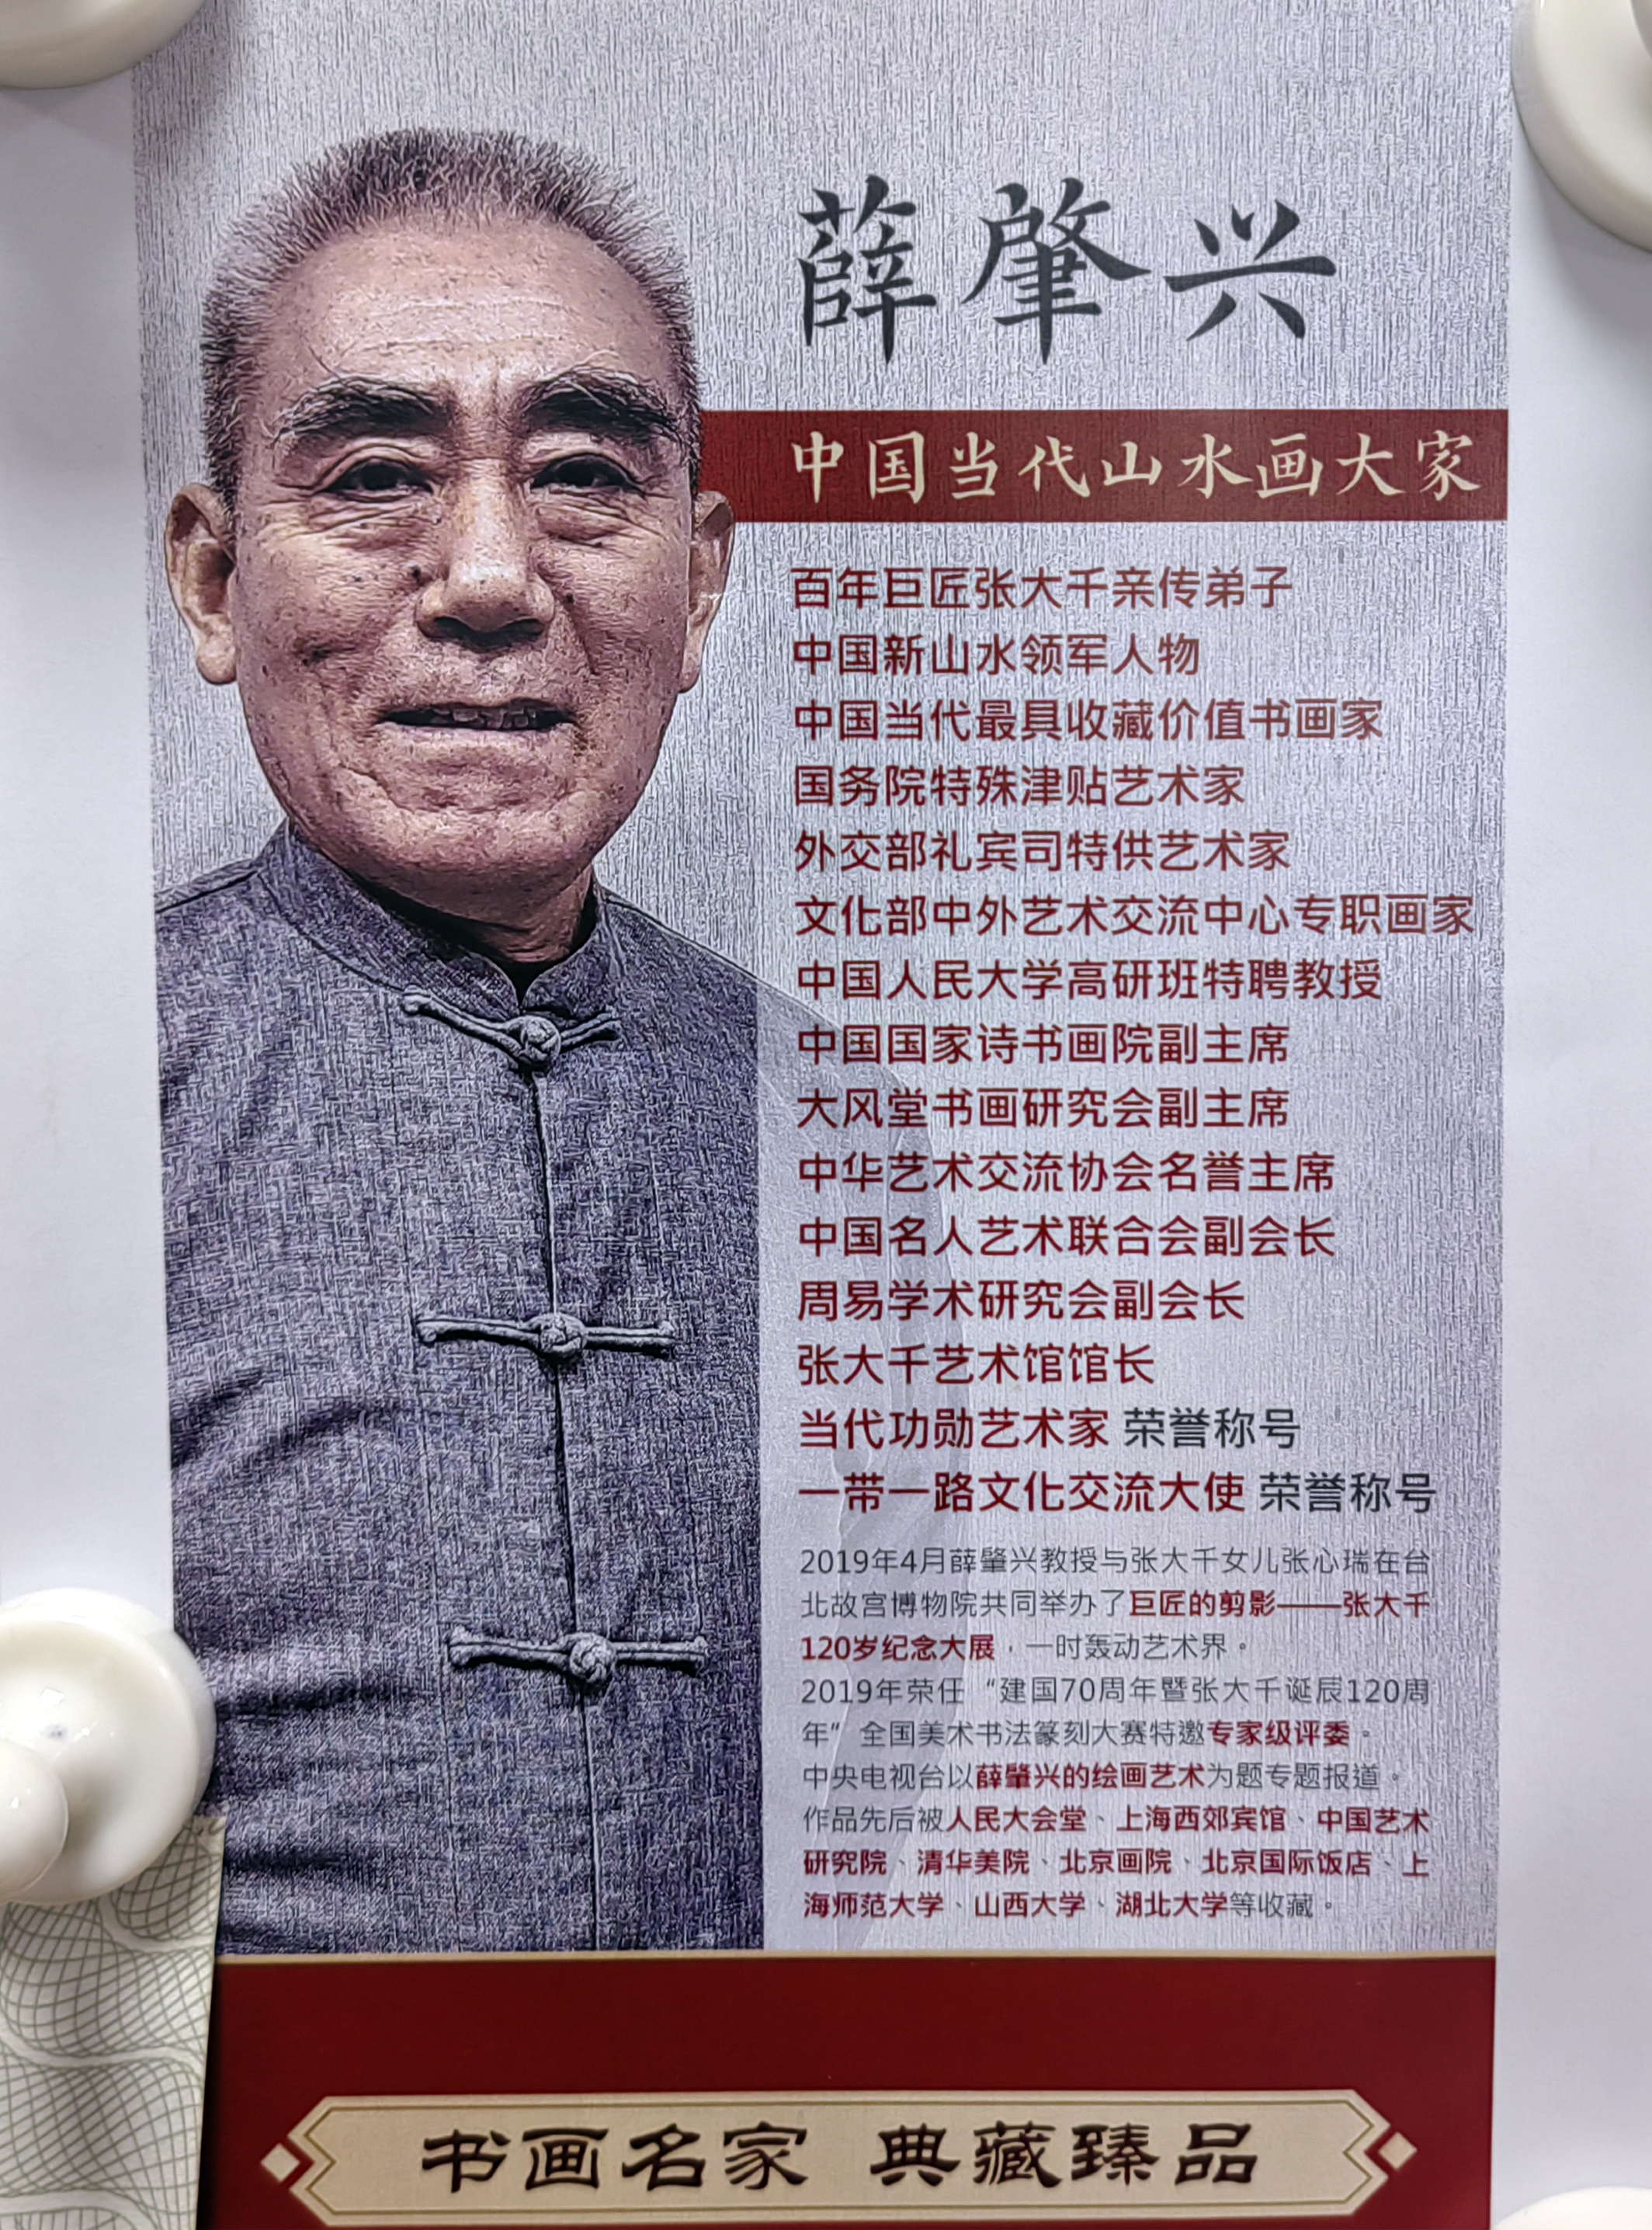 薛肇兴
中国当代山水画大家
百年巨匠张大千亲传弟子
中国新山水领军人物
中国当代最具收藏价值书画家
国务院特殊津贴艺术家
外交部礼宾司特供艺术家
文化部中外艺术交流中心专职画家
中国人民大学高研班特聘教授
中国国家诗书画院副主席
大风堂书画研究会副主席
中华艺术交流协会名誉主席
中国名人艺术联合会副会长
周易学术研究会副会长
张大千艺术馆馆长
当代功勋艺术家 荣誉称号
一带一路文化交流大使 荣誉称号
2019年4月薛肇兴教授与张大千女儿张心瑞在台
北故宫博物院共同举办了巨匠的剪影——张大千
120岁纪念大展，一时轰动艺术界。
2019年荣任“建国70周年暨张大千诞辰120周
年”全国美术书法篆刻大赛特邀专家级评委。
中央电视台以薛肇兴的绘画艺术为题专题报道。
作品先后被人民大会堂、上海西郊宾馆、中国艺术
研究院、清华美院、北京画院、北京国际饭店、上
海师范大学、山西大学、湖北大学等收藏。
书画名家 典藏臻品